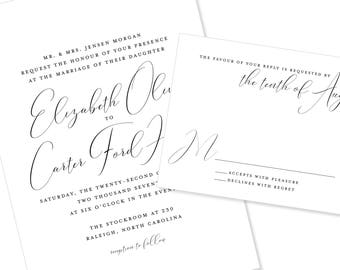 MR. & MRS. JENSEN MORGAN
REQUEST THE HONOUR OF YOUR PRESENCE
AT THE MARRIAGE OF THEIR DAUGHTER
Elizabeth
TO
Carter Ford
SATURDAY, THE TWENTY-SECOND
TWO THOUSAND
AT SIX O'CLOCK IN THE
THE STOCKROOM AT 230
RALEIGH, NORTH CAROLINA
reception to follow
THE FAVOUR OF YOUR REPLY IS REQUESTED BY
the tenth of
M
ACCEPTS WITH PLEASURE
DECLINES WITH REGRET